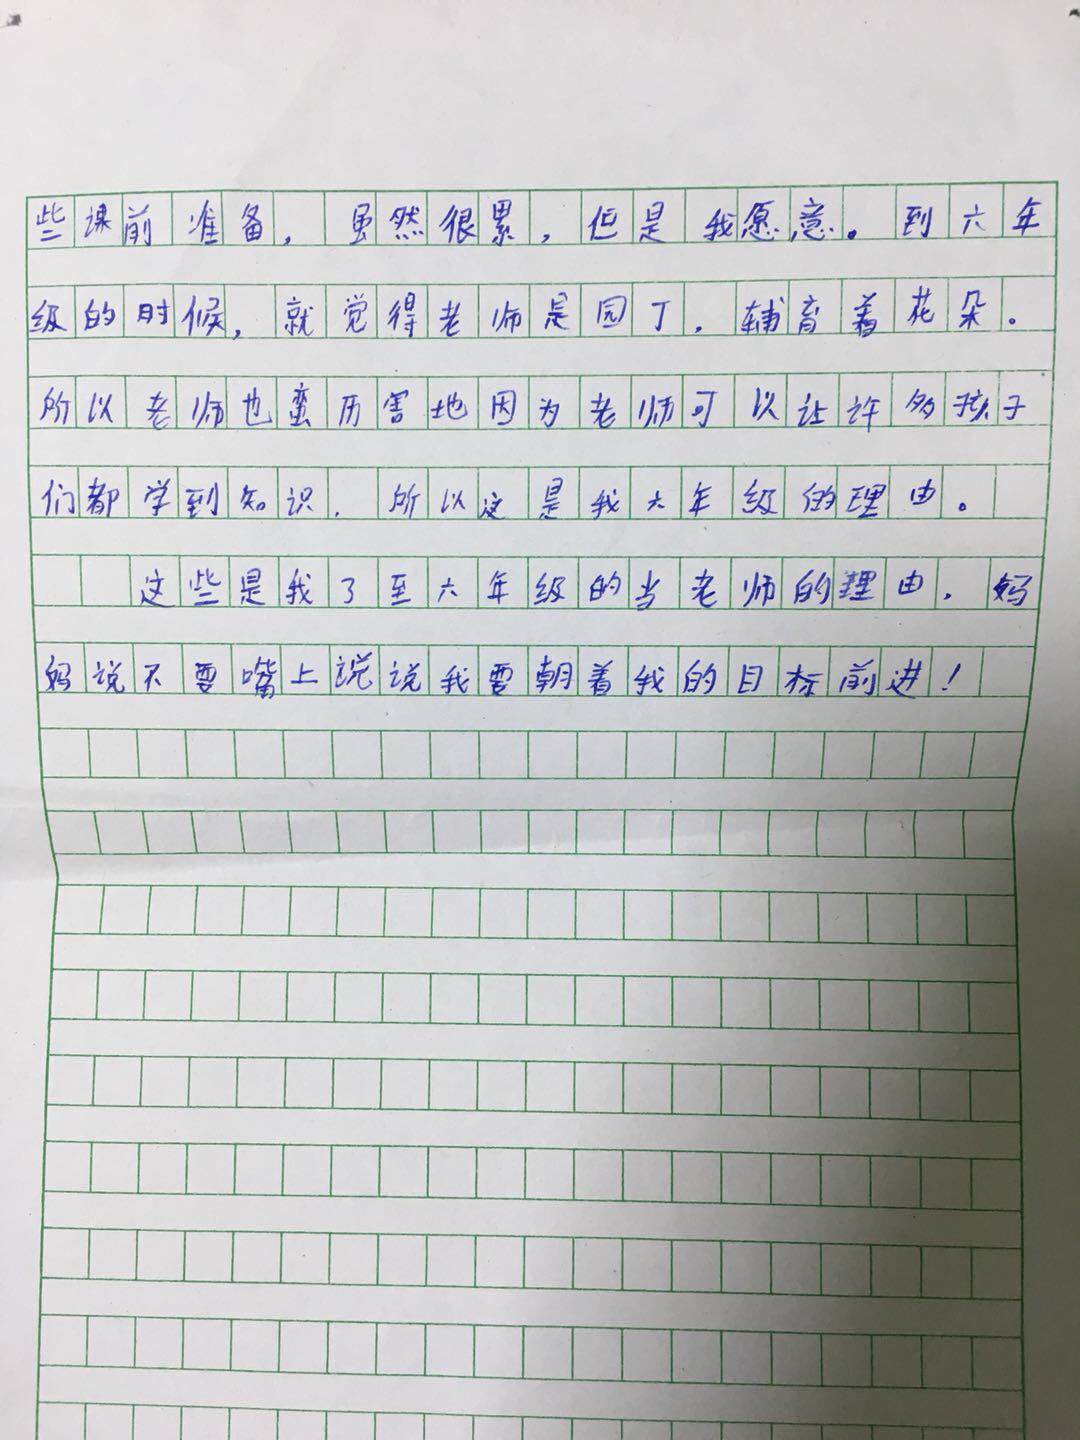 些课前准备,虽然很累,但是我愿意。到六年
级的时候,就觉得老师是园丁,辅育着花朵。
所以老师也蛮厉害地因为老师可以让许多孩子
们都学到知识.所以这是我六年级的理由。
这些是我了至六年级的当老师的理由.妈
妈说不要嘴上说说我要朝着我的目标前进!